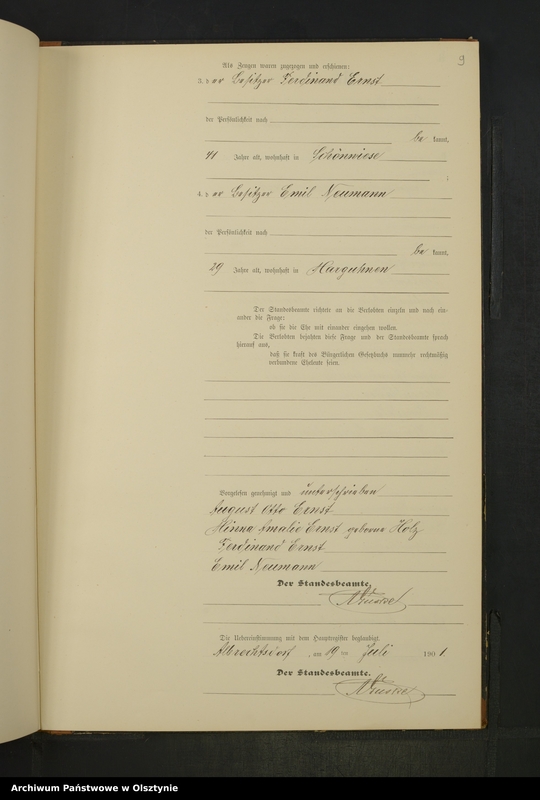 9
Als Zeugen waren zugezogen und erschienen:
3. der Besitzer Ferdinand Ernst
der Persönlichkeit nach
be kannt,
41 Jahre alt, wohnhaft in Schönwiese
;
4. der Besitzer Emil Neumann
der Persönlichkeit nach
be kannt,
29 Jahre alt, wohnhaft in Hurguhnen
Der Standesbeamte richtete an die Verlobten einzeln und nach ein-
ander die Frage:
ob sie die Ehe mit einander eingehen wollen.
Die Verlobten bejahten diese Frage und der Standesbeamte sprach
hierauf aus,
daß sie kraft des Bürgerlichen Gesetzbuchs nunmehr rechtmäßig
verbundene Eheleute seien.
Vorgelesen, genehmigt und unterschrieben
August Otto Ernst
Minna Amalie Ernst geborne Holz
Ferdinand Ernst
Emil Neumann
Der Standesbeamte.
Die Uebereinstimmung mit dem Hauptregister beglaubigt.
Albrechtsdorf, am 19 ten Juli 1901.
Der Standesbeamte.
Archiwum Państwowe w Olsztynie